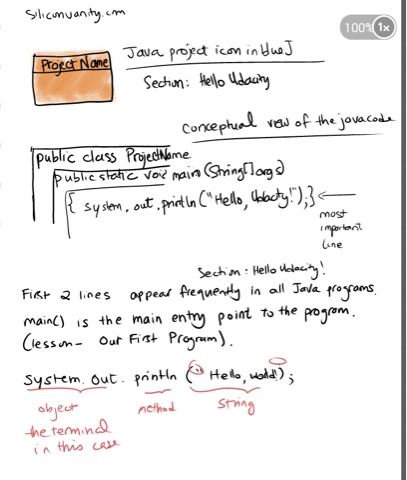 Siliconvanity.com
100% 1x
Project Name
Java project icon in blueJ
Section: Hello Udacity
Conceptual view of the java code
public class ProjectName
public static void main (String[] args)
{ system.out.println("Hello, Udacity!");}
most
important
line
Section: Hello Udacity!
First 2 lines appear frequently in all Java programs.
main() is the main entry point to the program.
(lesson - Our First Program).
System.out. println (" Hello, world!");
object method String
the terminal
in this case